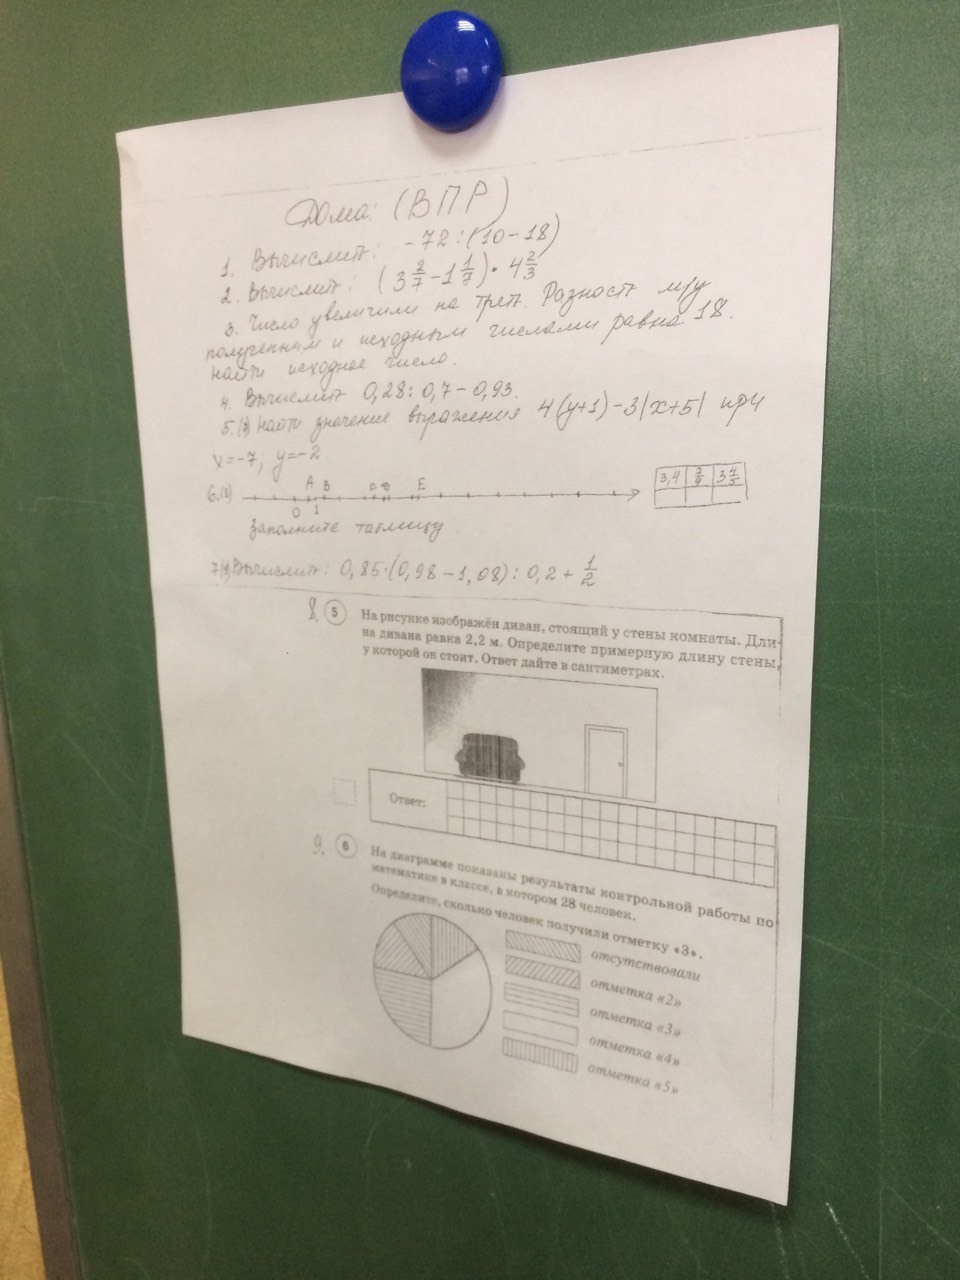 Дома: (ВПР)
1. Вычислить: -72 : (10-18)
2. Вычислить: (3 2/7 - 1 1/7) • 4 2/3
3. Число увеличили на треть. Разность м/у
полученным и исходным числами равна 18.
Найти исходное число.
4. Вычислить 0,28 : 0,7 - 0,93.
Найти значение выражения 4(y+1)-3|x+5| при
x=-7; y=-2
A B C D E
0 1
3,4 3 4/5
Заполните таблицу
Вычислить: 0,85•(0,98-1,08) : 0,2 + 1/2
8. 5 На рисунке изображён диван, стоящий у стены комнаты. Дли-
на дивана равна 2,2 м. Определите примерную длину стены,
у которой он стоит. Ответ дайте в сантиметрах.
Ответ:
9. 6 На диаграмме показаны результаты контрольной работы по
математике в классе, в котором 28 человек.
Определите, сколько человек получили отметку «3».
отсутствовали
отметка «2»
отметка «3»
отметка «4»
отметка «5»